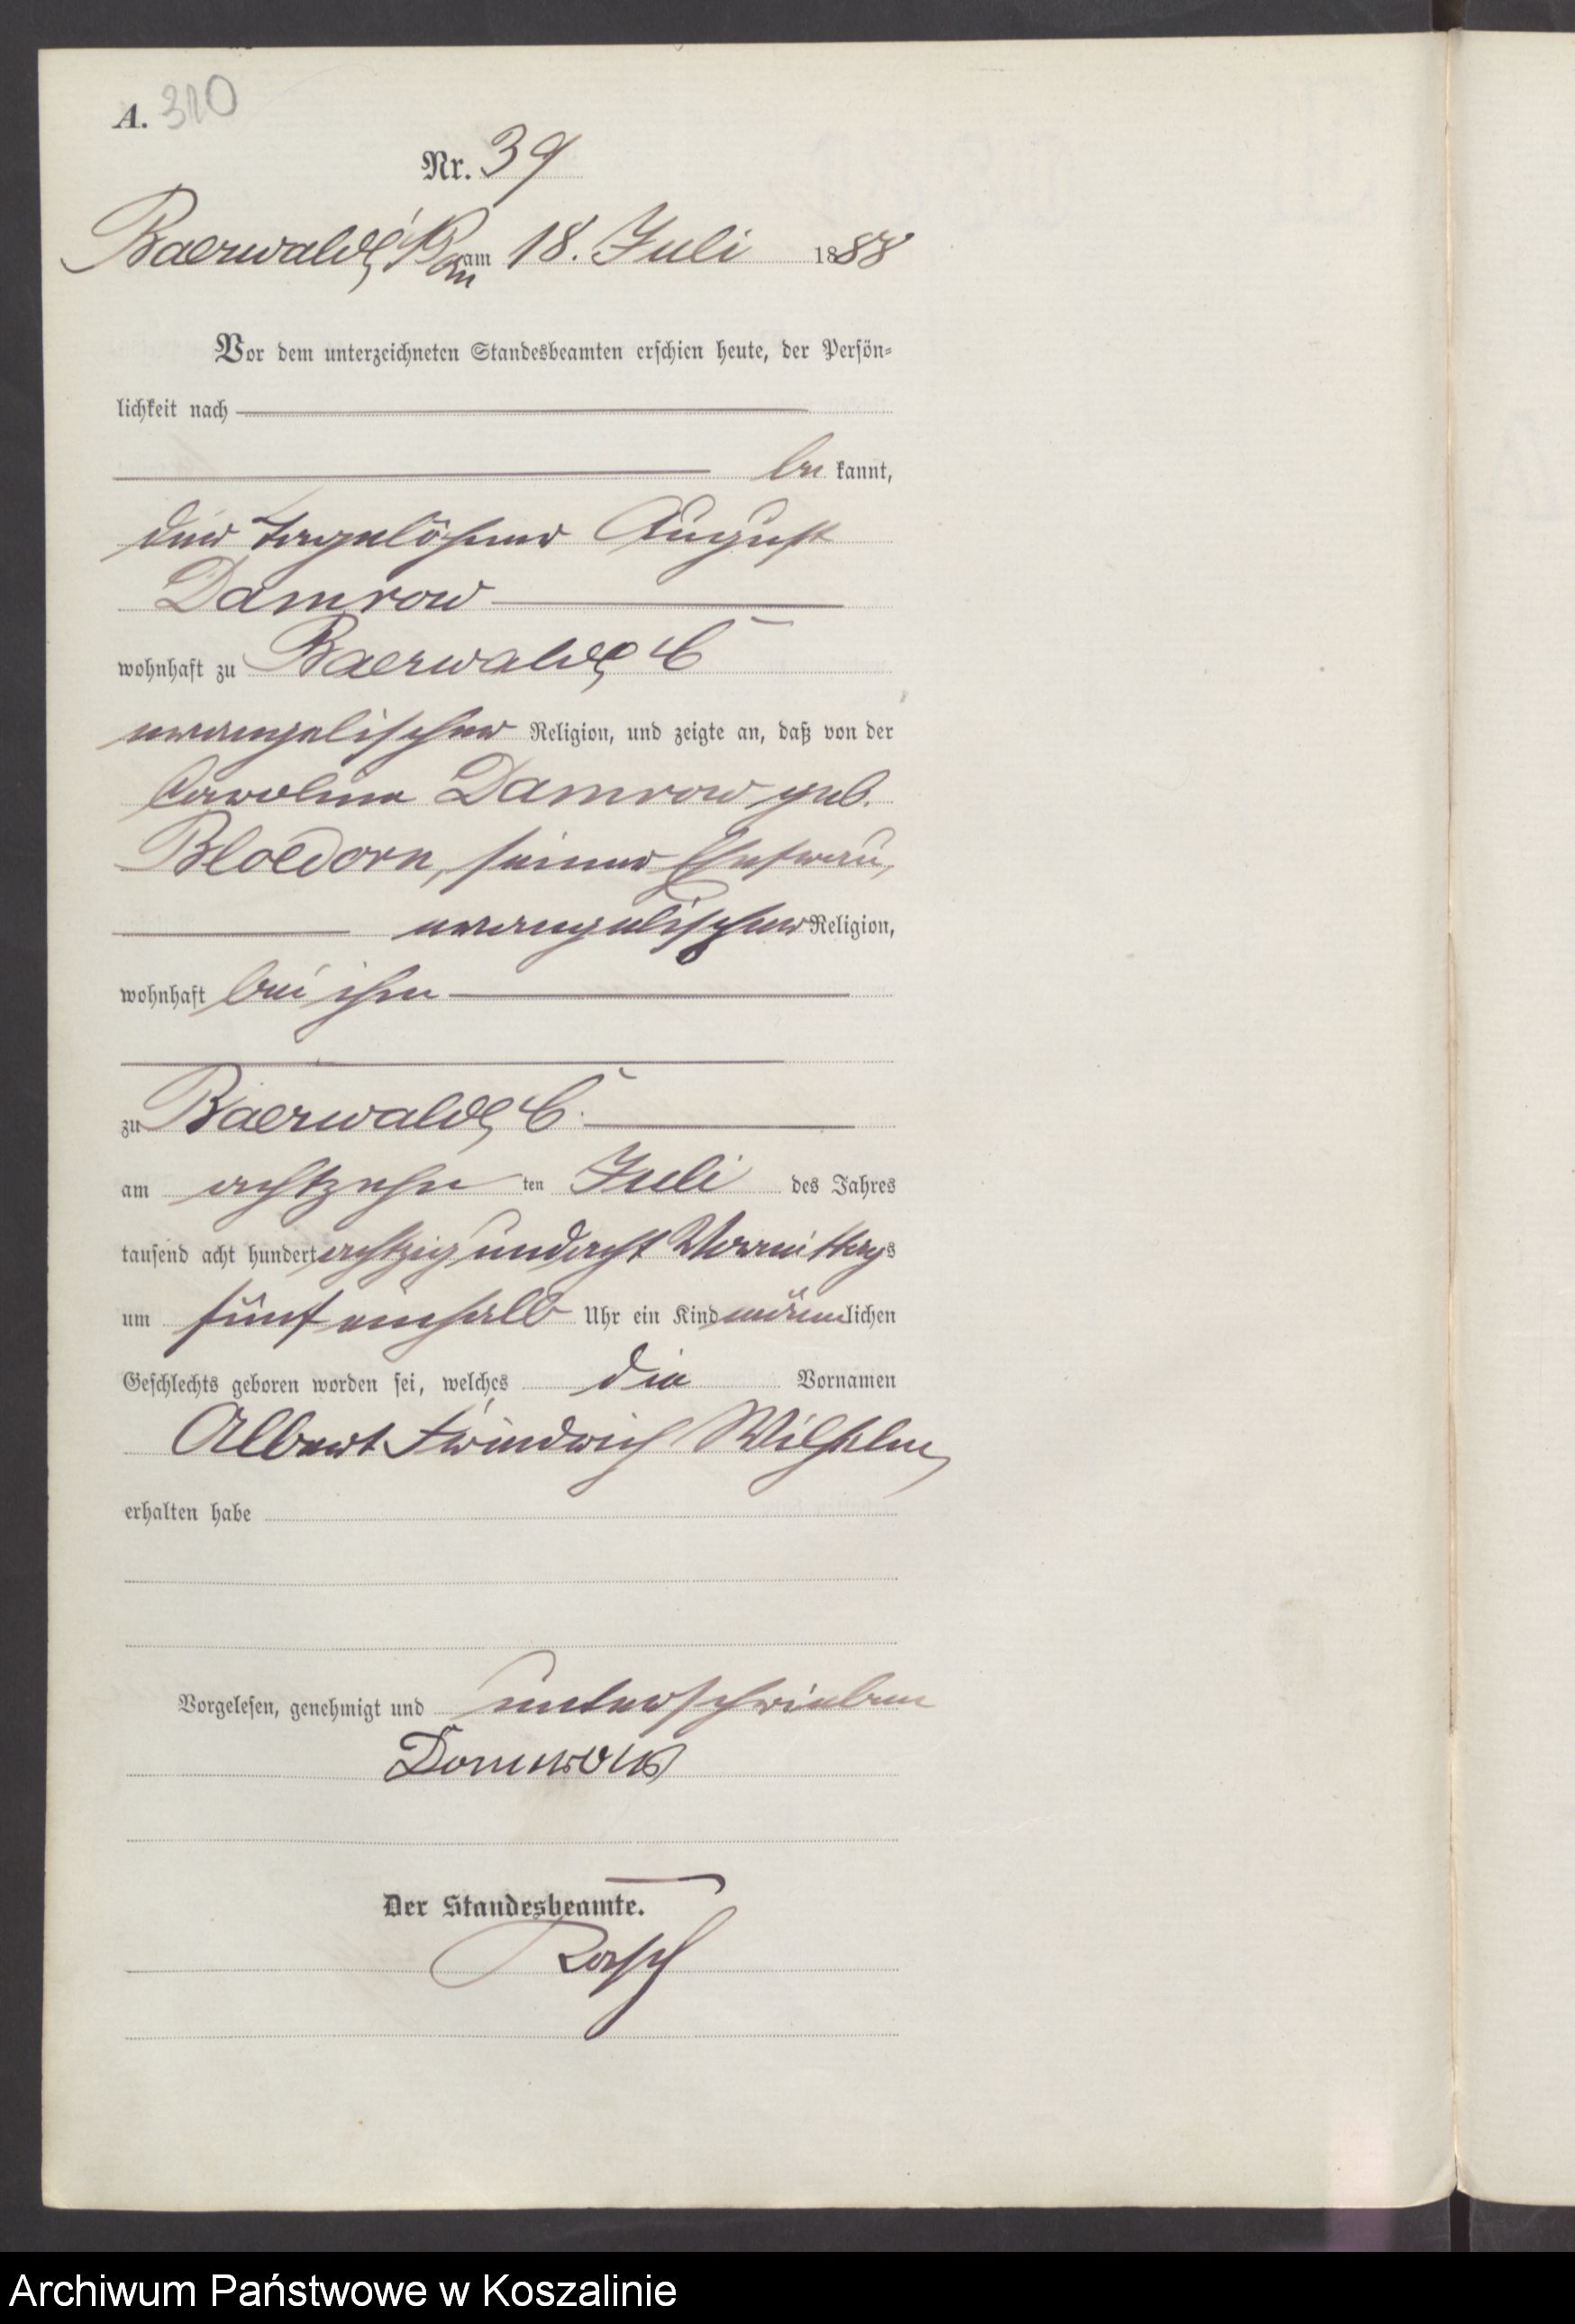 A. 310
Nr. 39
Baerwalde, am 18. Juli 1888
Vor dem unterzeichneten Standesbeamten erschien heute, der Persön-
lichkeit nach
be kannt,
der Tagelöhner August
Damrow
wohnhaft zu Baerwalde,
evangelischer Religion, und zeigte an, daß von der
Caroline Damrow geb.
Bloedorn, seiner Ehefrau,
evangelischer Religion,
wohnhaft bei ihm
zu Baerwalde,
am achtzehn ten Juli des Jahres
tausend acht hundert achtzig und acht Vormittags
um fünf einhalb Uhr ein Kind männlichen
Geschlechts geboren worden sei, welches die Vornamen
Albert Friedrich Wilhelm
erhalten habe
Vorgelesen, genehmigt und unterschrieben
Damrow
Der Standesbeamte.
Archiwum Państwowe w Koszalinie